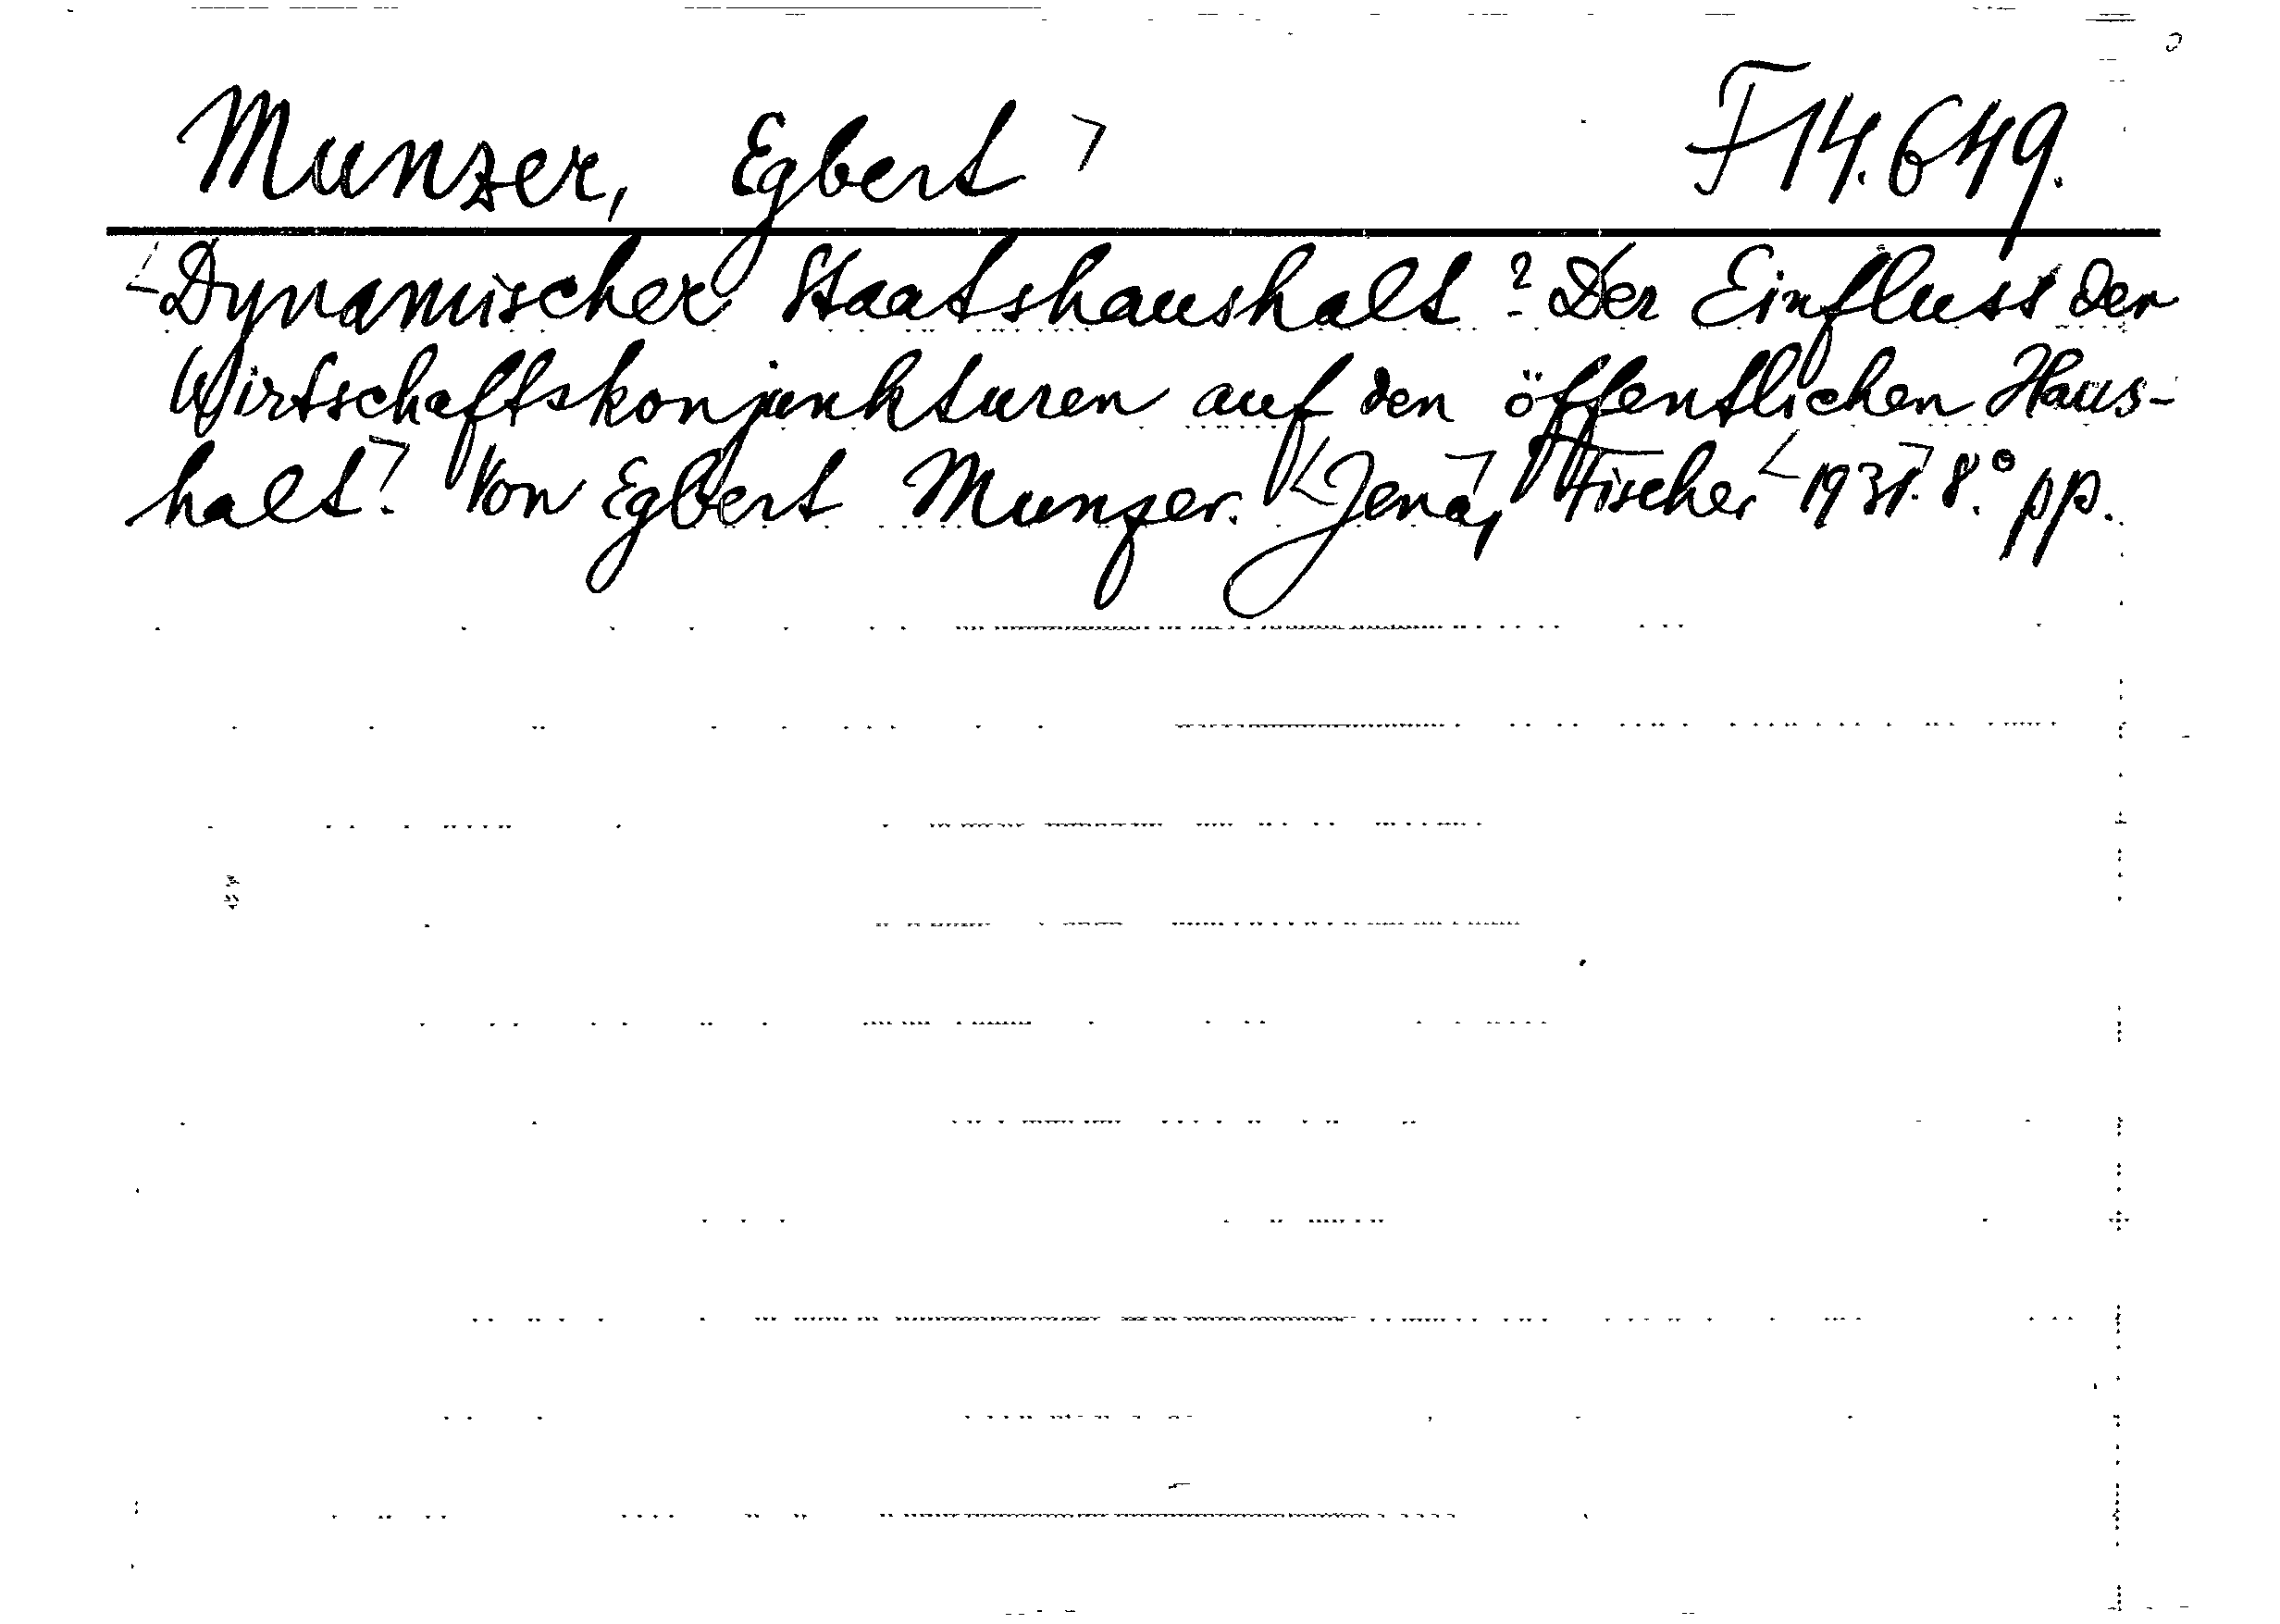 Munzer, Egbert F 14.649.
Dynamischer Staatshaushalt? Der Einfluss der
Wirtschaftskonjunkturen auf den öffentlichen Haus-
halt. Von Egbert Munzer. Jena, Fischer 1931. 8.° pp.